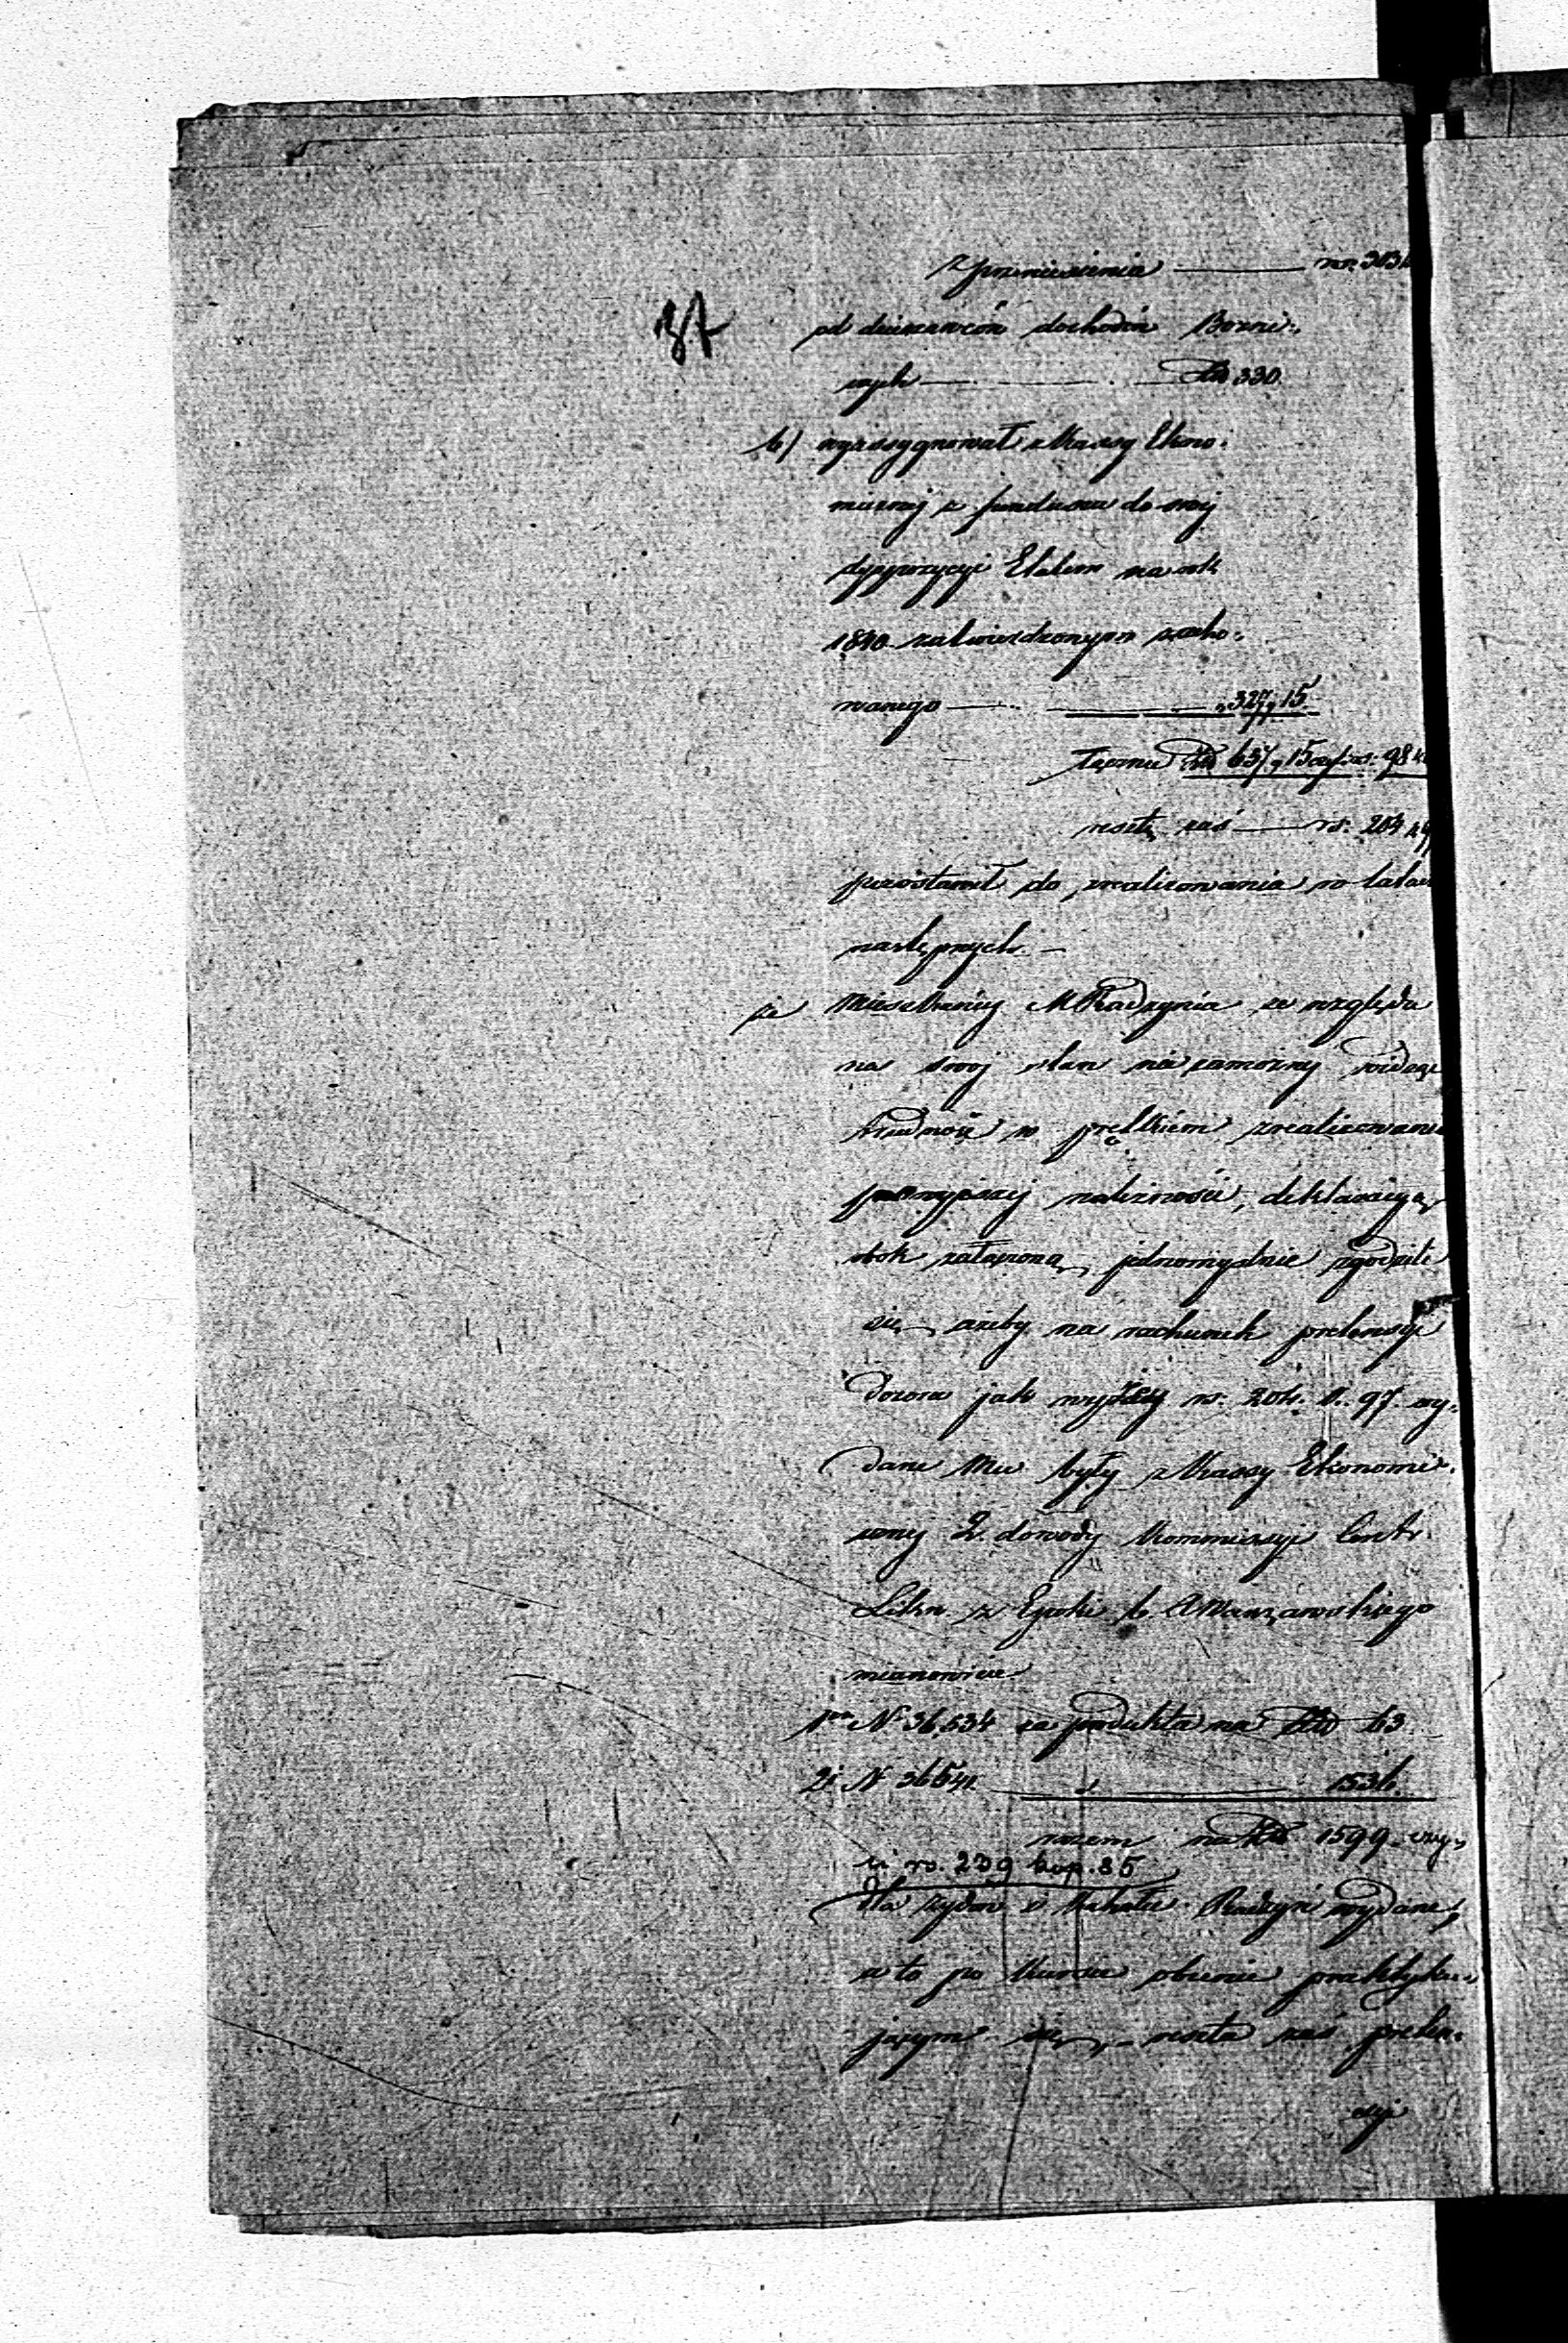 z przeniesienia — rs. 303
37
od dzierzawców dochodów Bożni:
cych — Złp 330.
b/ wyassygnował z Kassy Ekono:
micznej z funduszu do swej
dyspozycyi Etatem na rok
1840 zatwierdzonym zacho:
wanego — „ 327 „ 15.
łącznie Złp 657 „ 15 czyli rs. 98
resztę zaś — rs. 204
pozostawił do zrealizowania w latach
następnych. —
że Mieszkańcy M Radzynia ze względu
na swoj stan nie zamożny widząc
trudność w prędkiem zrealizowaniu
powyższej należności, deklaracyą
obok załączoną jednomyślnie zgodzili
się, ażeby na rachunek pretensyi
dozoru jak wyżey rs. 204. k. 97. wy:
dane Mu były z Kassy Ekonomi:
cznej 2. dowody Kommissyi Centr.
Likw. z Epoki b. X Warszawskiego
mianowicie
1en N 36,534 za produkta na Złp 63
2i N 36541. — „ — 1536.
razem na Złp 1599 – czy„
li rs. 239 kop. 85
dla żydów w Kahale Radzyń wydane,
a to po kursie obecnie praktyku„
jącym się, – reszta zaś preten:
syi